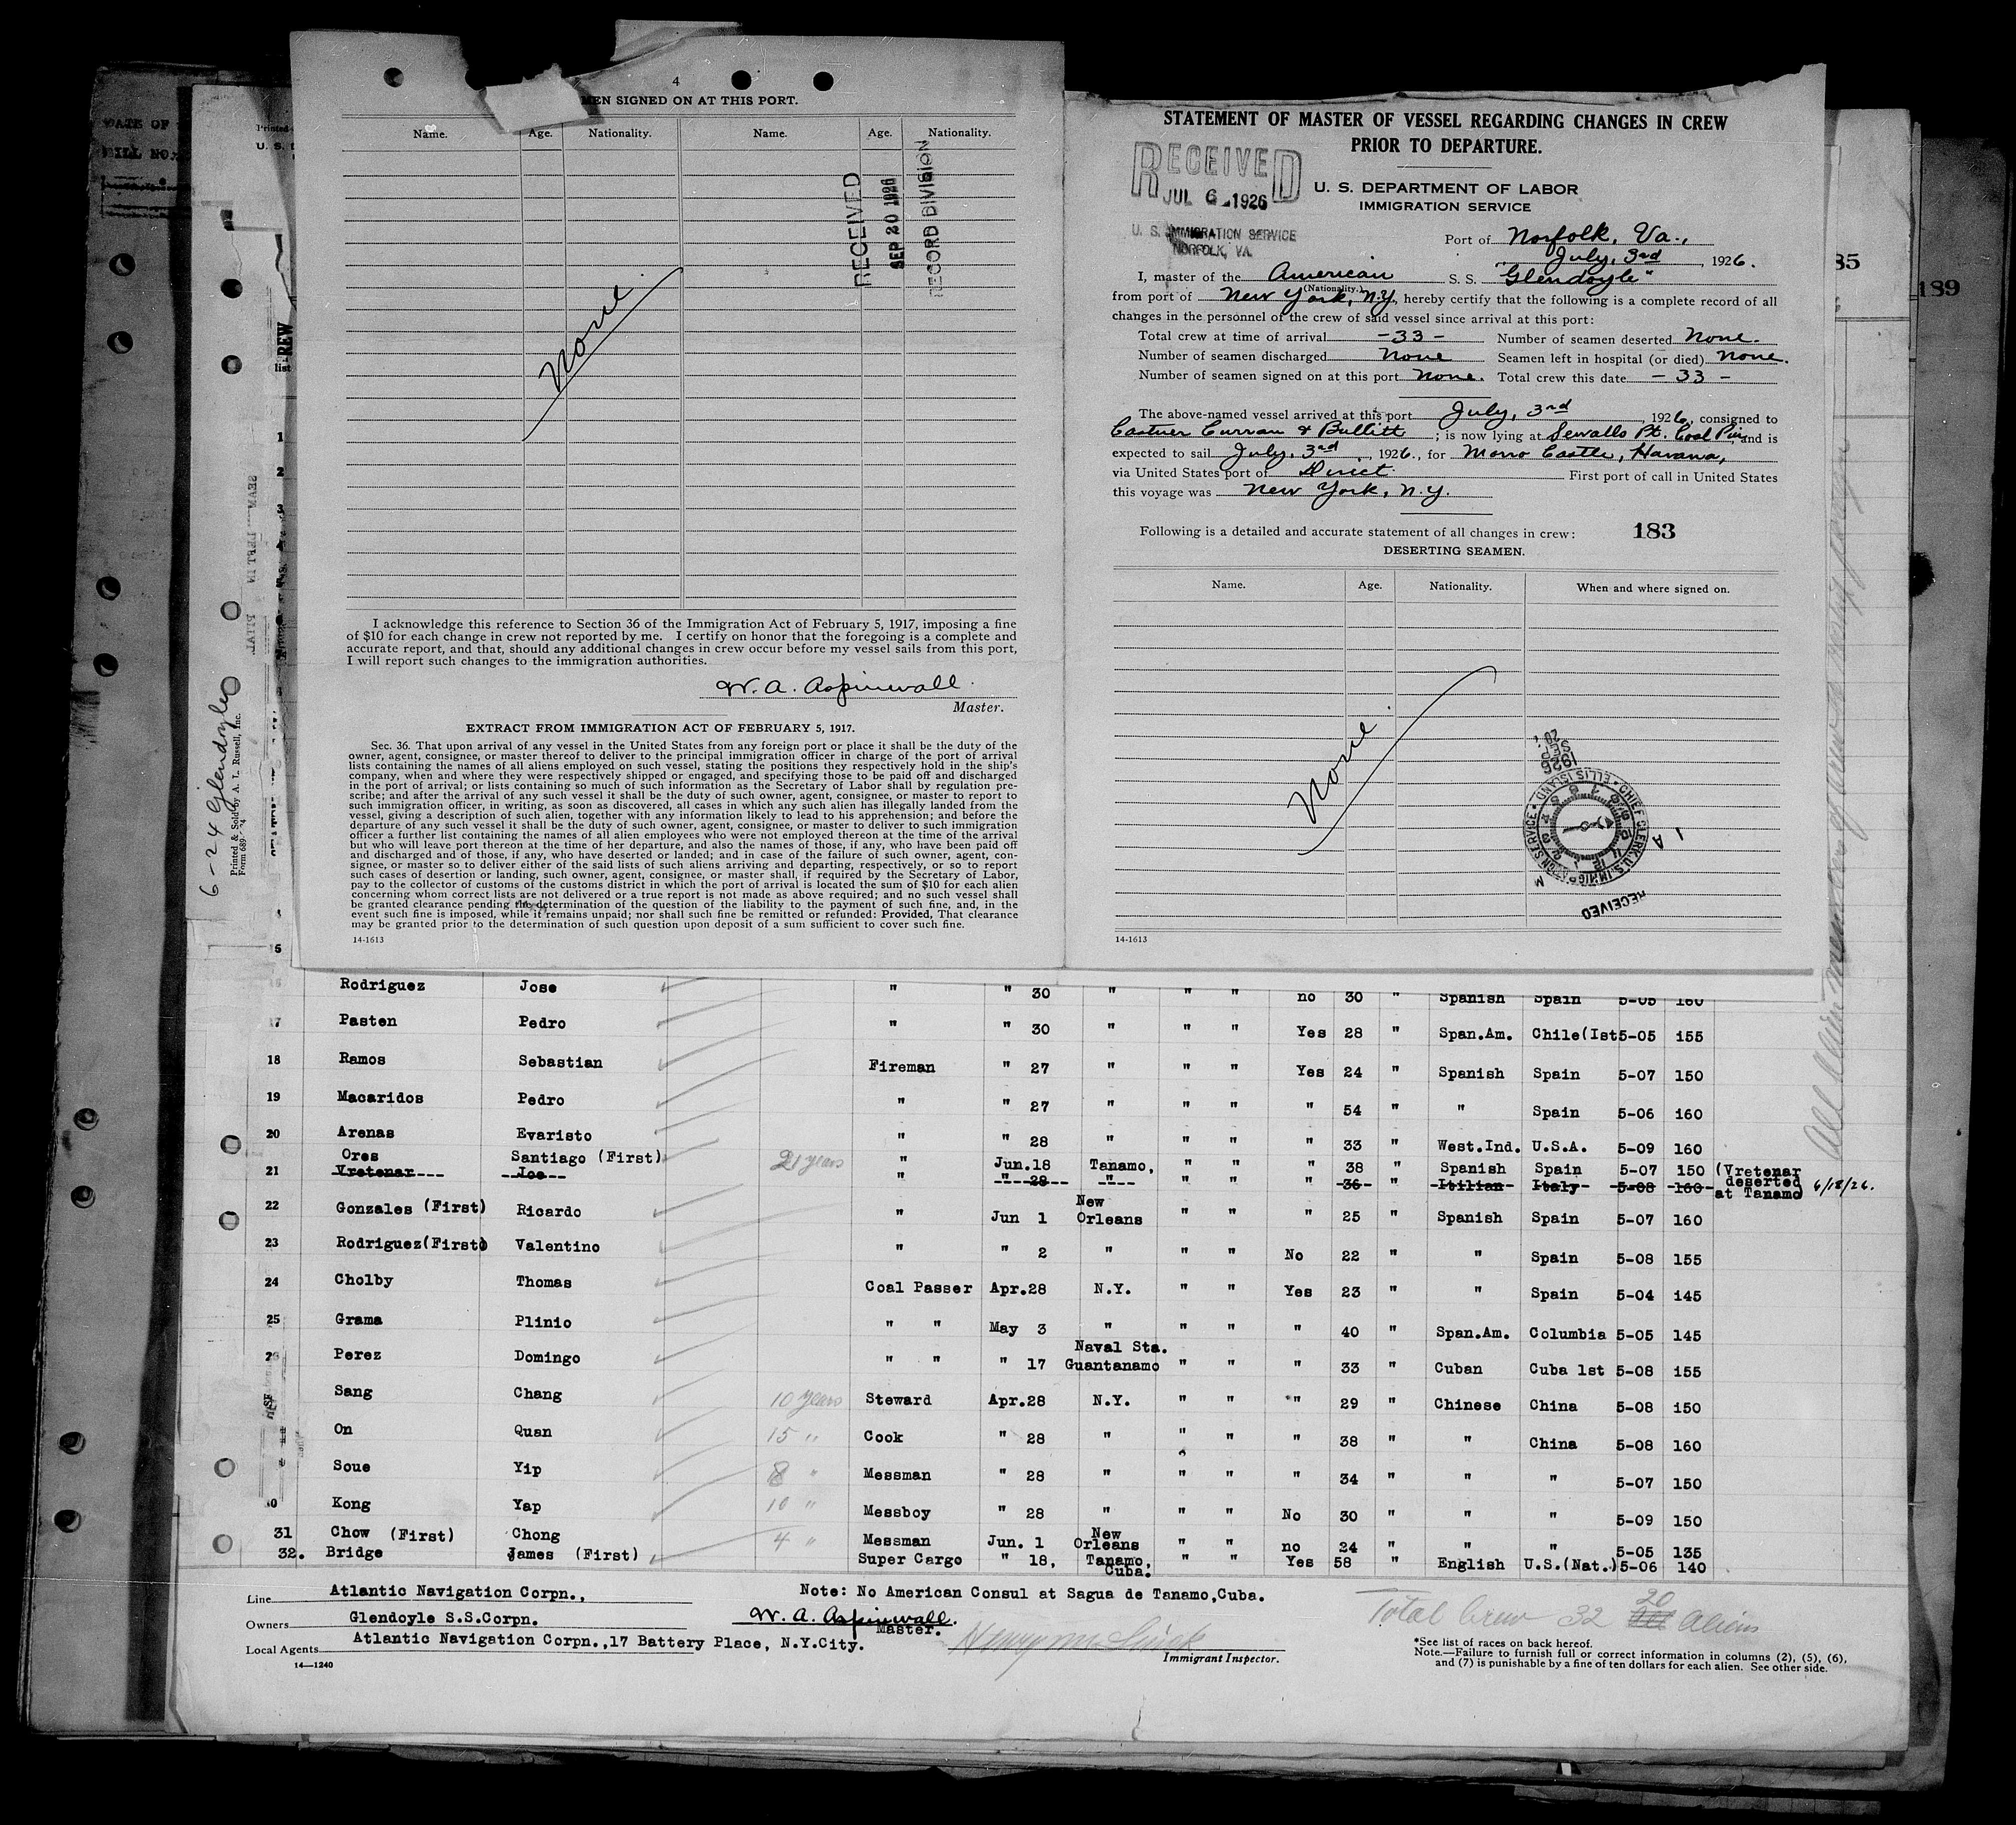 4
MEN SIGNED ON AT THIS PORT.
Name. Age. Nationality. Name. Age. Nationality.
RECEIVED
SEP 20 1926
RECORD DIVISION
None
I acknowledge this reference to Section 36 of the Immigration Act of February 5, 1917, imposing a fine
of $10 for each change in crew not reported by me. I certify on honor that the foregoing is a complete and
accurate report, and that, should any additional changes in crew occur before my vessel sails from this port,
I will report such changes to the immigration authorities.
W. A. Aspinwall
Master.
EXTRACT FROM IMMIGRATION ACT OF FEBRUARY 5, 1917.
Sec. 36. That upon arrival of any vessel in the United States from any foreign port or place it shall be the duty of the
owner, agent, consignee, or master thereof to deliver to the principal immigration officer in charge of the port of arrival
lists containing the names of all aliens employed on such vessel, stating the positions they respectively hold in the ship's
company, when and where they were respectively shipped or engaged, and specifying those to be paid off and discharged
in the port of arrival; or lists containing so much of such information as the Secretary of Labor shall by regulation pre-
scribe; and after the arrival of any such vessel it shall be the duty of such owner, agent, consignee, or master to report to
such immigration officer, in writing, as soon as discovered, all cases in which any such alien has illegally landed from the
vessel, giving a description of such alien, together with any information likely to lead to his apprehension; and before the
departure of any such vessel it shall be the duty of such owner, agent, consignee, or master to deliver to such immigration
officer a further list containing the names of all alien employees who were not employed thereon at the time of the arrival
but who will leave port thereon at the time of her departure, and also the names of those, if any, who have been paid off
and discharged and of those, if any, who have deserted or landed; and in case of the failure of such owner, agent, con-
signee, or master so to deliver either of the said lists of such aliens arriving and departing, respectively, or so to report
such cases of desertion or landing, such owner, agent, consignee, or master shall, if required by the Secretary of Labor,
pay to the collector of customs of the customs district in which the port of arrival is located the sum of $10 for each alien
concerning whom correct lists are not delivered or a true report is not made as above required; and no such vessel shall
be granted clearance pending the determination of the question of the liability to the payment of such fine, and, in the
event such fine is imposed, while it remains unpaid; nor shall such fine be remitted or refunded: Provided, That clearance
may be granted prior to the determination of such question upon deposit of a sum sufficient to cover such fine.
14-1613
STATEMENT OF MASTER OF VESSEL REGARDING CHANGES IN CREW
PRIOR TO DEPARTURE.
RECEIVED
JUL 6 1926
U. S. IMMIGRATION SERVICE
NORFOLK, VA.
U. S. DEPARTMENT OF LABOR
IMMIGRATION SERVICE
Port of Norfolk, Va.,
July, 3rd, 1926.
I, master of the American S. S. "Glendoyle"
(Nationality.)
from port of New York, N.Y, hereby certify that the following is a complete record of all
changes in the personnel of the crew of said vessel since arrival at this port:
Total crew at time of arrival -33- Number of seamen deserted None.
Number of seamen discharged None Seamen left in hospital (or died) None.
Number of seamen signed on at this port None. Total crew this date -33-
The above-named vessel arrived at this port July, 3rd 1926, consigned to
Castner Curran & Bullitt ; is now lying at Sewalls Pt. Coal Pier, and is
expected to sail July, 3rd, 1926., for Morro Castle, Havana,
via United States port of Direct First port of call in United States
this voyage was New York, N.Y.
Following is a detailed and accurate statement of all changes in crew: 183
DESERTING SEAMEN.
Name. Age. Nationality. When and where signed on.
None.
SEP 20 1926
CHIEF CLERK U.S. IMMIGRATION SERVICE • ELLIS ISLAND
RECEIVED
14-1613
85
189
DATE OF
BILL NO.
Printed
U. S.
REW
list
6-24 Glendoyle
Printed & Sold by A. L. Russell, Inc.
Form 689
1
2
3
5
Rodriguez Jose " " 30 " " " no 30 " Spanish Spain 5-05 160
17 Pasten Pedro " " 30 " " " Yes 28 " Span.Am. Chile(Ist 5-05 155
18 Ramos Sebastian Fireman " 27 " " " Yes 24 " Spanish Spain 5-07 150
19 Macaridos Pedro " " 27 " " " " 54 " " Spain 5-06 160
20 Arenas Evaristo " " 28 " " " " 33 " West.Ind. U.S.A. 5-09 160
Ores Santiago (First) 21 years " Jun.18 Tanamo, " " " 38 " Spanish Spain 5-07 150 (Vretenar
21 Vretenar Joe " " 28 " " " " 36 " Itilian Italy 5-08 160 deserted
at Tanamo 6/18/26.
22 Gonzales (First) Ricardo " Jun 1 New Orleans " " " 25 " Spanish Spain 5-07 160
23 Rodriguez(First) Valentino " " 2 " " " No 22 " " Spain 5-08 155
24 Cholby Thomas Coal Passer Apr.28 N.Y. " " Yes 23 " " Spain 5-04 145
25 Grama Plinio " " May 3 " " " " 40 " Span.Am. Columbia 5-05 145
26 Perez Domingo " " " 17 Naval Sta. Guantanamo " " " 33 " Cuban Cuba 1st 5-08 155
Sang Chang 10 years Steward Apr.28 N.Y. " " " 29 " Chinese China 5-08 150
On Quan 15 " Cook " 28 " " " " 38 " " China 5-08 160
Soue Yip 8 " Messman " 28 " " " " 34 " " " 5-07 150
30 Kong Yap 10 " Messboy " 28 " " " No 30 " " " 5-09 150
31 Chow (First) Chong 4 " Messman Jun. 1 New Orleans " " no 24 " " " 5-05 135
32. Bridge James (First) Super Cargo " 18, Tanamo, Cuba. " " Yes 58 " English U.S.(Nat.) 5-06 140
Line Atlantic Navigation Corpn., Note: No American Consul at Sagua de Tanamo,Cuba.
Owners Glendoyle S.S.Corpn. W. A. Aspinwall. Master.
Local Agents Atlantic Navigation Corpn.,17 Battery Place, N.Y.City.
Immigrant Inspector.
14—1240
Total Crew 32 20 Aliens
*See list of races on back hereof.
Note.—Failure to furnish full or correct information in columns (2), (5), (6),
and (7) is punishable by a fine of ten dollars for each alien. See other side.